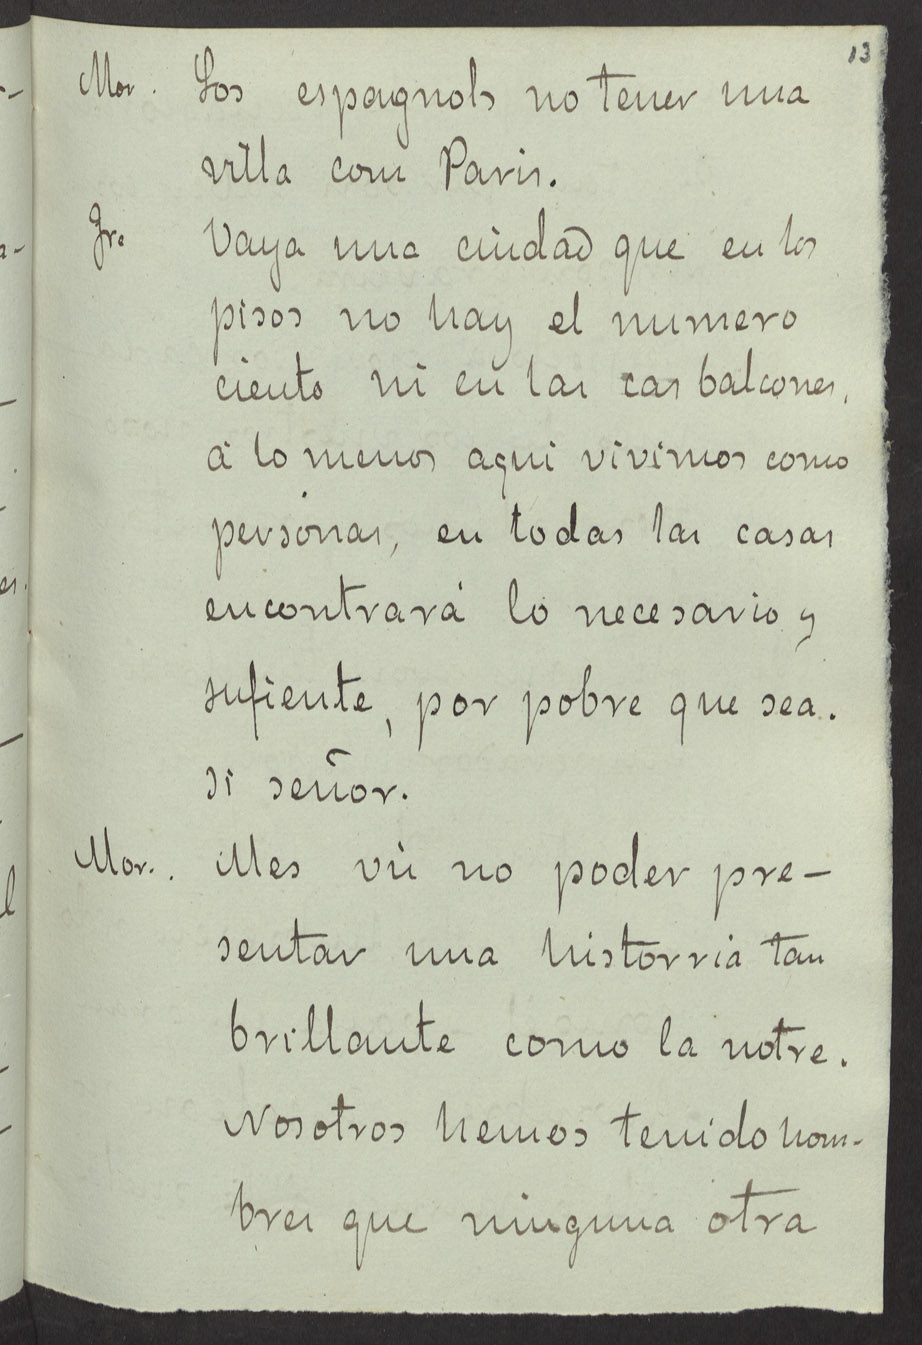 13
Mor. Los espagnols no tener una
villa com Paris.
Gre Vaya una ciudad que en los
pisos no hay el numero
ciento ni en las cas balcones,
á lo menos aqui vivimos como
personas, en todas las casas
encontrará lo necesario y
sufiente, por pobre que sea.
si señor.
Mor. Mes vù no poder pre-
sentar una historria tan
brillante como la notre.
Nosotros hemos tenido hom-
bres que ninguna otra